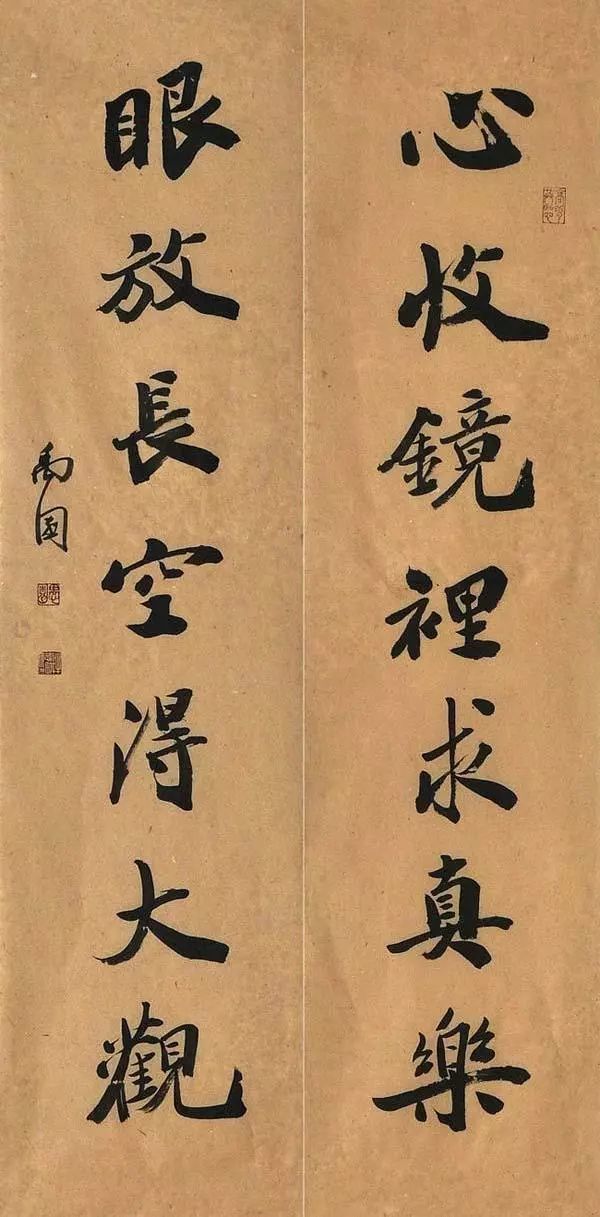 心收鏡裡求真樂
眼放長空得大觀
禹園